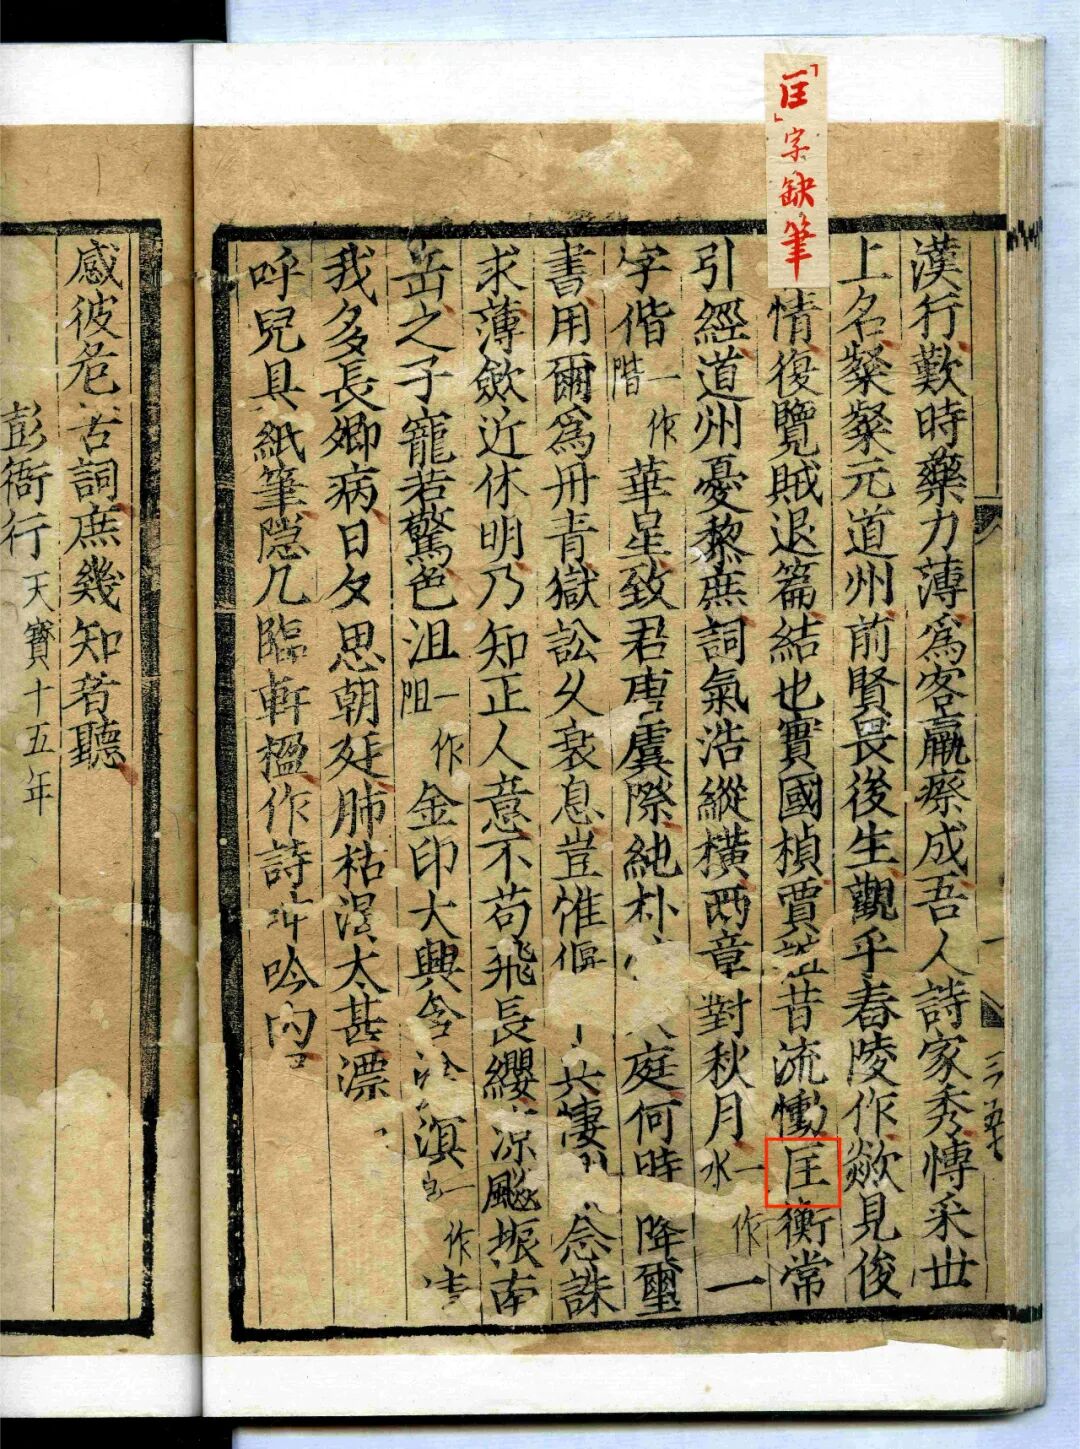 「匡」字缺筆
漢行歎時藥力薄爲客羸瘵成吾人詩家秀博采世
上名粲粲元道州前賢畏後生觀乎舂陵作歘見俊
情復覽賊退篇結也實國楨賈昔流慟匡衡常
引經道州憂黎庶詞氣浩縱橫兩章對秋月一作水一
字偕一作階華星致君唐虞際純朴庭何時降璽
書用爾爲丹青獄訟久衰息豈惟偃共悽念誅
求薄斂近休明乃知正人意不苟飛長纓涼飈振南
岳之子寵若驚色沮一作阻金印大興含溟一作
我多長卿病日夕思朝廷肺枯渴太甚漂
呼兒具紙筆隱几臨軒楹作詩吟內
感彼危苦詞庶幾知者聽
彭衙行天寶十五年